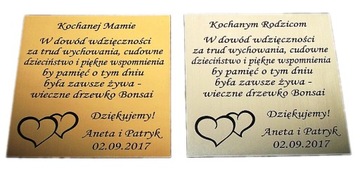 Kochanej Mamie
W dowód wdzięczności
za trud wychowania, cudowne
dzieciństwo i piękne wspomnienia
by pamięć o tym dniu
była zawsze żywa -
wieczne drzewko Bonsai
Dziękujemy!
Aneta i Patryk
02.09.2017
Kochanym Rodzicom
W dowód wdzięczności
za trud wychowania, cudowne
dzieciństwo i piękne wspomnienia
by pamięć o tym dniu
była zawsze żywa -
wieczne drzewko Bonsai
Dziękujemy!
Aneta i Patryk
02.09.2017